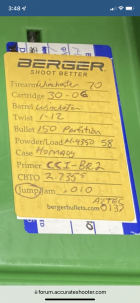 3:48
BERGER
SHOOT BETTER
Firearm Winchester 70
Cartridge 30-06
Barrel Winchester
Twist 1-12
Bullet 150 Partition
Powder/Load H-4350 58
Case Hornady
Primer CCI-BR2
CBTO 2.735"
Jump/Jam .010
AZTEC
bergerbullets.com 0137
forum.accurateshooter.com